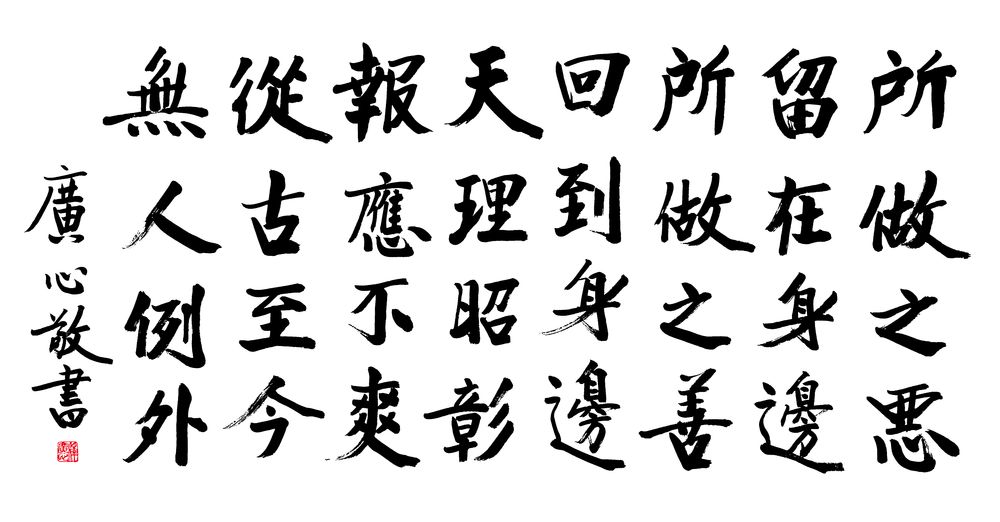 所做之悪
留在身邊
所做之善
回到身邊
天理昭彰
報應不爽
從古至今
無人例外
廣心敬書